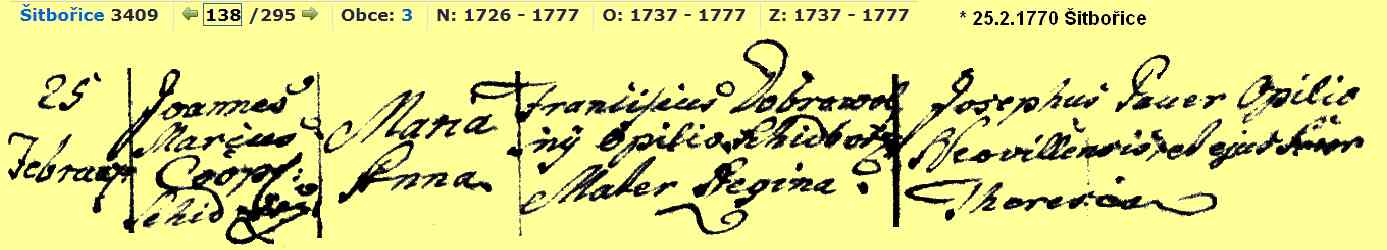 Šitbořice 3409 138 /295 Obce: 3 N: 1726 - 1777 O: 1737 - 1777 Z: 1737 - 1777 * 25.2.1770 Šitbořice
25
Joannes
Marcus
Coop:
Maria
Anna
Franciscus Dobrawol
ny Opilio
Mater Regina
Josephus Pauer Opilio
Neovillensis et ejus
Theresia